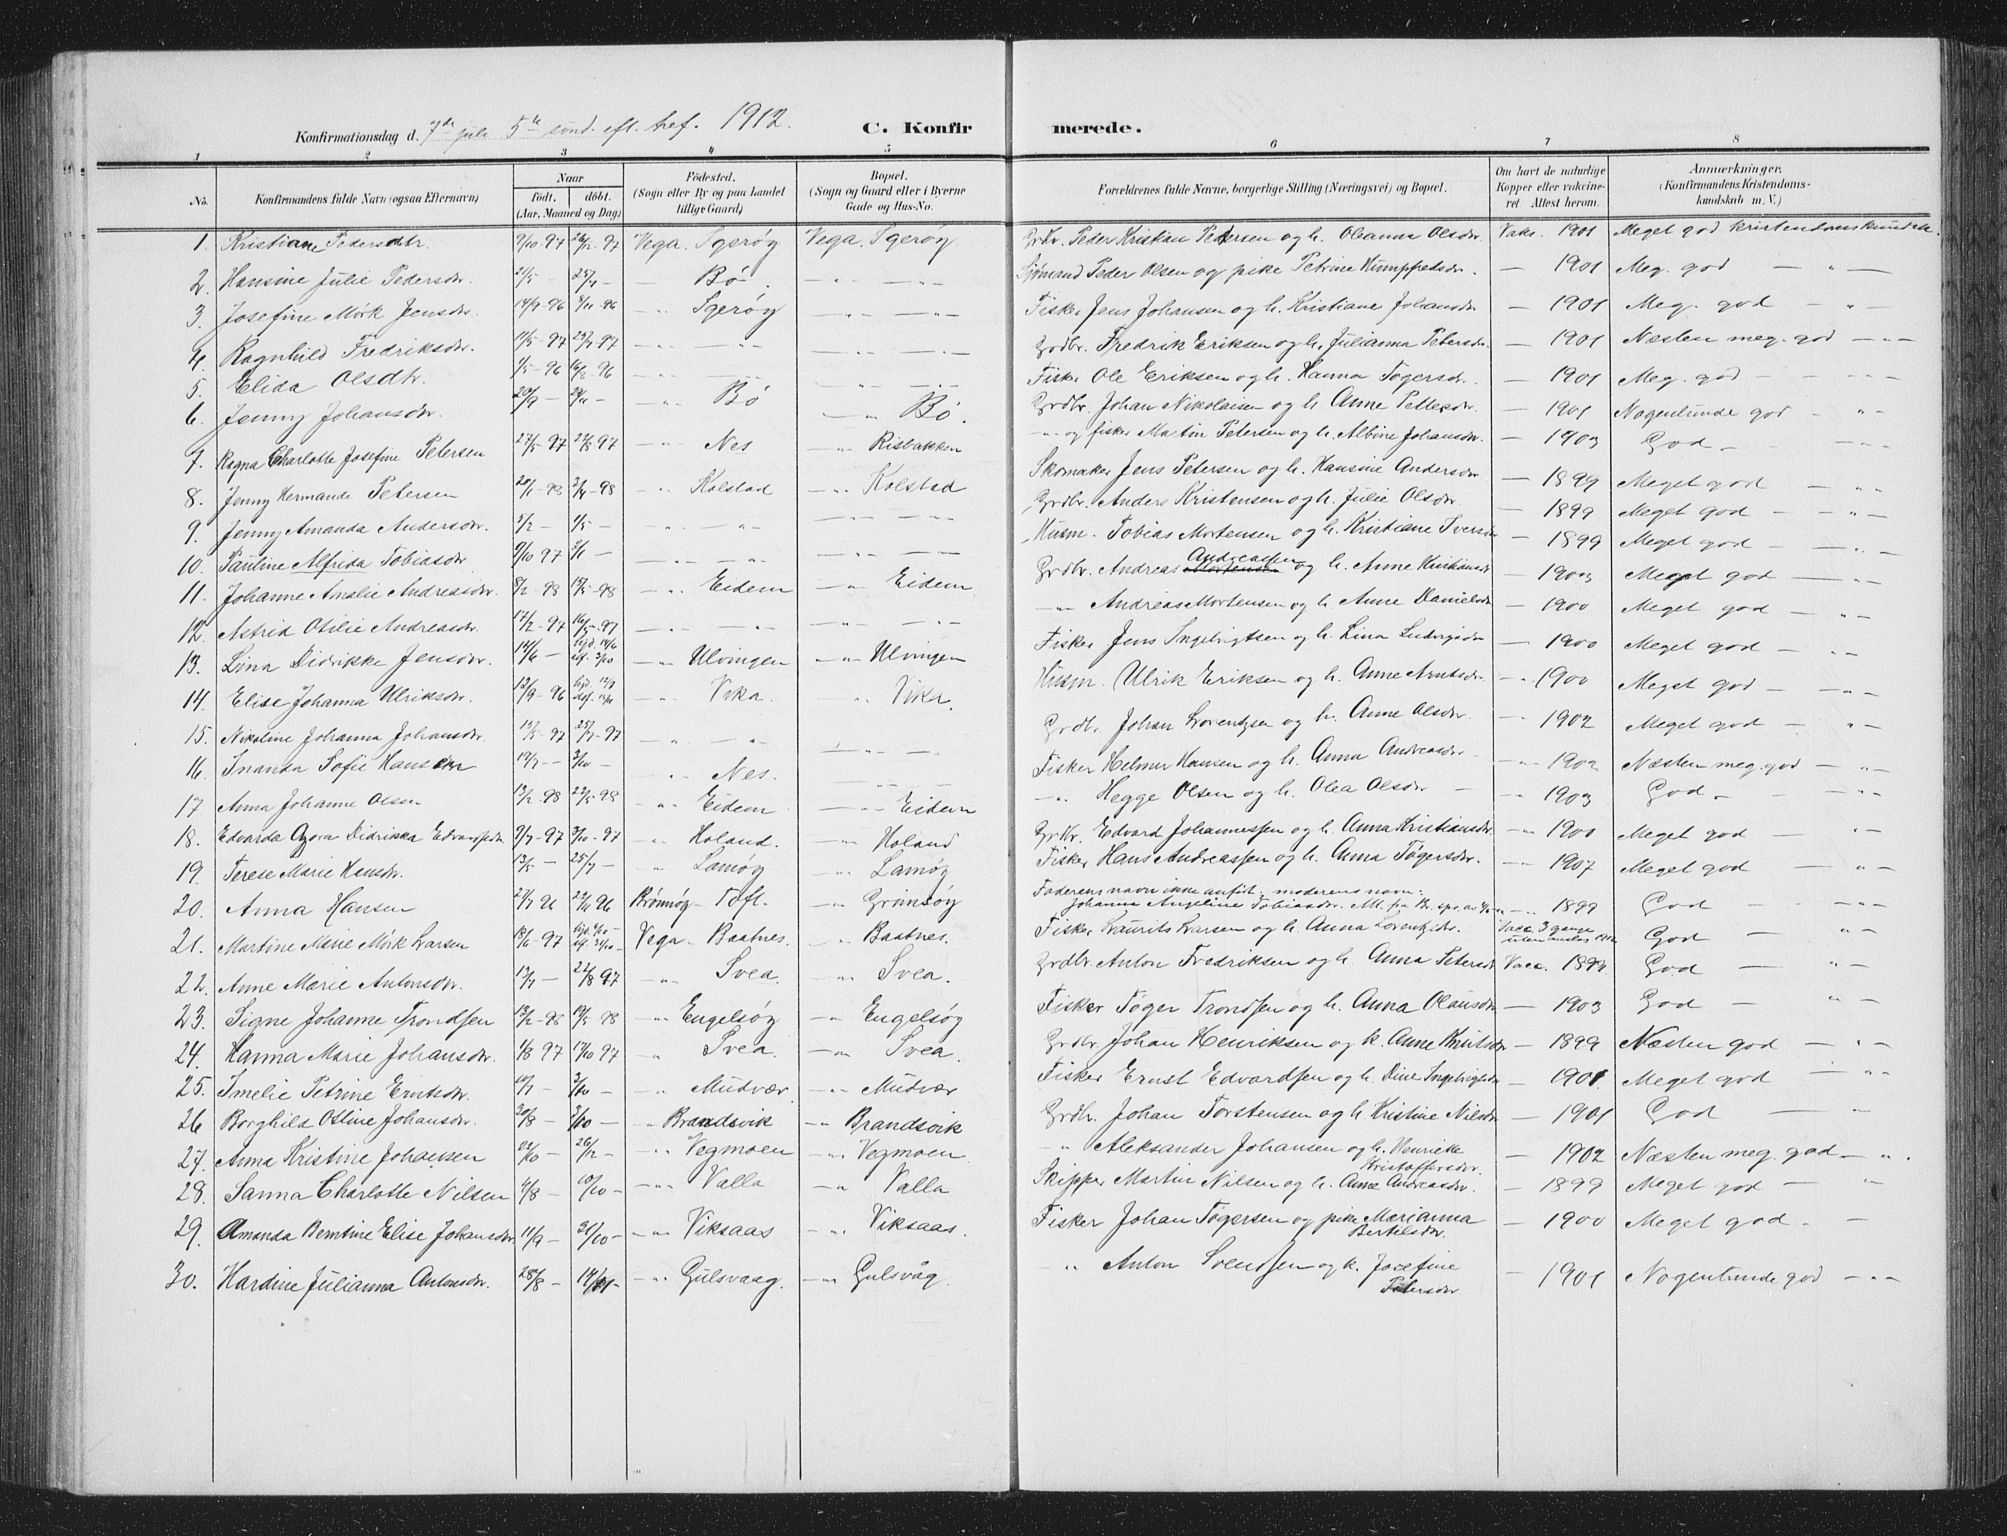 Konfirmationsdag d. 7de juli 5te sönd. eft. tref. 1912. C. Konfirmerede.
1 2 3 4 5 6 7 8
No. Konfirmandens fulde Navn (ogsaa Efternavn) Naar födt. döbt. (Aar, Maaned og Dag) Födested. (Sogn eller By og paa Landet tillige Gaard) Bopæl. (Sogn og Gaard eller i Byerne Gade og Hus-No. Forældrenes fulde Navne, borgerlige Stilling (Næringsvei) og Bopæl. Om havt de naturlige Kopper eller vaccineret. Attest herom. Anmærkninger. (Konfirmandens Kristendomskundskab m. V.)
1. Kristiane Pedersdtr. 9/10-97 26/12-97 Vega. Sgeröy Vega. Sgeröy Grdbr. Peder Kristian Pedersen og h. Oleanna Olsdr. Vaks. 1901 Meget god kristendomskundsk.
2. Hansine Julie Pedersdr. 21/5 — 25/7 — — Bö. — „ — „ — Sjömand Peder Olsen og pike Petrine Humpfredsdr. — 1901 Meg. god — „ —
3. Josefine Mörk Jensdr. 14/9-96 8/11-96 — „ Sgeröy — „ — „ — Fisker Jens Johansen og h. Kristiane Johansdr — 1901 Meg. god — „
4. Ragnhild Fredriksdr. 11/5-97 25/7-97 — „ — „ — — „ — „ — Grdbr. Fredrik Eriksen og h. Julianna Petersdr. — 1901 Næsten meg. god — „ —
5. Elida Olsdtr. 1/5-96 16/8-96 — „ — „ — „ — Fisker Ole Eriksen og h. Hanna Tögersdr. — 1901 Meg. god — „ —
6. Jenny Johansdr. 20/9 — 29/11 — — „ Bö — „ Bö. Grdbr. Johan Nikolaisen og h. Anne Pettersdr. — 1901 Nogenlunde god — „ —
7. Ragna Charlotte Josefine Petersen 27/5-97 29/8 97 — „ Nes — „ Risbakken — „ og fisker Martin Petersen og h. Albine Johansdr. — 1903 God — — „ —
8. Jenny Hermande Petersen 20/1-98 3/4-98 — „ Kolstad — „ Kolstad Skomaker Jens Petersen og h. Hansine Andersdr — 1899 Meget god — — „
9. Jenny Amanda Andersdr. 3/2 — 1/5 — — „ — „ — — „ — „ — Grdbr. Anders Kristensen og h. Julie Olsdr. — 1899 Meget god — — „ —
10. Pauline Alfrida Tobiasdr 9/10 97 3/1 — — „ — „ — — „ — „ — Husm. Tobias Mortensen og h. Kristiane Iversdr — 1899 Meget god — — „ —
11. Johanne Amalie Andreasdr. 8/2-98 15/5-98 — „ Eidem — „ Eidem Grdbr. Andreas Andreassen og h. Anne Kristiansdr — 1903 Meget god — — „ —
12. Astrid Otilie Andreasdr. 17/2-97 16/5-97 — „ — „ — — „ — „ — — „ Andreas Mortensen og h. Anne Danielsdr — 1900 Meget god — — „
13. Lina Didrikke Jensdr. 14/6 — hjd. 14/6 stf. 3/10 — „ Ulvingen — „ Ulvingen Fisker Jens Ingebrigtsen og h. Lina Ludvigsdr — 1900 Meget god — — „
14. Elise Johanna Ulriksdr. 12/9-96 — „ Vika. — „ Vika. Husm. Ulrik Eriksen og h. Anne Arntsdr. — „ 1900 Meget god — — „ —
15. Nikoline Johanna Johansdr 13/5-97 25/7-97 — „ — „ — — „ — „ — Grdbr. Johan Lorentzen og h. Anne Olsdr. — „ 1902 Meget god — — „
16. Inanda Sofie Hansen 19/7 — 3/10 — — „ Nes. — „ — Fisker Helmer Hansen og h. Anna Andreasdr — „ 1902 Næsten meg. god — — „ —
17 Anna Johanne Olsen 13/2-98 22/5-98 — „ Eidem — „ Eidem — „ Hegge Olsen og h. Olea Olsdr — — „ 1903 God — — — „ —
18. Edvarda Agora Didrikka Edvardsdr 9/7-97 3/10-97 — „ Holand. — „ Holand Grdbr. Edvard Johannessen og h. Anna Kristiansdr. — „ 1900 Meget god — — „ —
19. Terese Marie Hansdr. 13/5 — 25/7 — „ Lamöy — „ Lamöy Fisker Hans Andreassen og h. Anna Tögersdr. — „ 1907 Meget god — — „ —
20. Anna Hansen 27/7 96 22/11 96 Brönnöy — Toft. — „ Grimsöy Faderens navn ikke anfört. moderens navn: Johanna Angeline Tobiasdr. — „ 1899 God — — „ —
21. Martine Marie Mörk Larsen 18/6-97 Vega — Baatnes. — „ Baatnes. Fisker Laurits Larsen og h. Anna Lorentzdr. Vacc. 3 gange uten anslag God — — „
22. Anne Marie Antonsdr. 13/7 — 22/8 97 — „ Svea — „ Svea. Grdbr. Anton Fredriksen og h. Anna Petersdr Vacc. 1899. God — — „
23. Signe Johanne Trondsen 13/2-98 19/5-98 — „ Engelsöy — „ Engelsöy Fisker Töger Trondsen og h. Anna Olausdr — 1903 God — „ —
24. Hanna Marie Johansdr. 1/8 97 17/10 97 „ Svea. — „ Svea. Grdbr. Johan Henriksen og k. Anne Knutsdr — 1899 Næsten god — — „ —
25. Imelie Petrine Erntsdr. 11/7 — 3/10 — — „ Mudvær — „ Mudvær Fisker Ernst Edvardsen og h. Dine Ingebrigtsdr — 1901 Meget god — — „ —
26 Borghild Otline Johansdr. 30/8 — 3/10 — „ Brandsvik — „ Brandsvik Grdbr. Johan Torstensen og h. Kristine Nilsdr — 1901 God — — „
27. Anna Kristine Johansen 22/10 — 26/12 — — „ Vegmoen — „ Vegmoen „ Aleksander Johansen og h. Henrikke Kristoffersdr. — 1902 Næsten meg. god — „ .
28. Sanna Charlotte Nilsen 4/8 — 10/10 — — „ Valla — „ Valla Skipper Martin Nilsen og h. Anna Andreasdr. — 1899 Meget god — „
29. Amanda Berntine Elise Johansdr. 11/9 — 31/10 — — „ Viksaas — „ Viksaas. Fisker Johan Tögersen og pike Marianna Bertilsdr. — 1900 Meget god — —
30. Hardine Julianna Antonsdr. 28/8 — 14/11 — — „ Gulsvaag. — „ Gulsvåg. — „ Anton Svendsen og k. Josefine Petersdr — 1901 Nogenlunde god — „ —